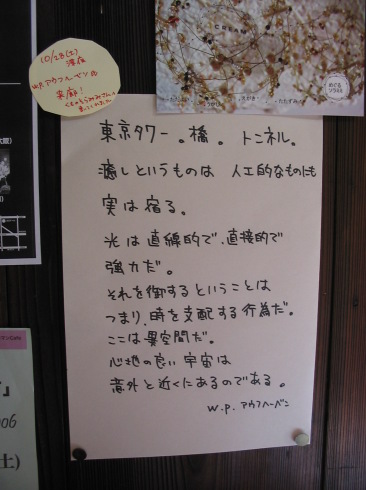 10/28(土)
W.P. アウフヘーベン氏
来廊!
CREAM
めぐる
東京タワー。橋。トンネル。
癒しというものは 人工的なものにも
実は宿る。
光は直線的で、直接的で
強力だ。
それを御するということは
つまり、時を支配する行為だ。
ここは異空間だ。
心地の良い宇宙は
意外と近くにあるのである。
W.P. アウフヘーベン
」
006
土)